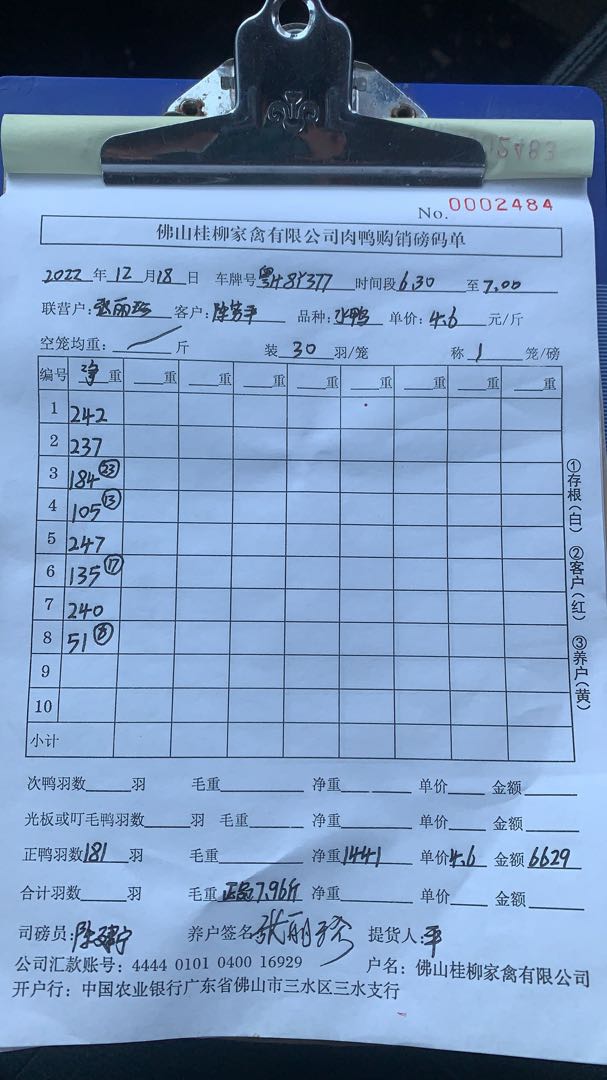 12483
No. 0002484
佛山桂柳家禽有限公司肉鸭购销磅码单
2022 年 12 月 18 日 车牌号 粤H8Y377 时间段 6.30 至 7.00
联营户: 张丽珍 客户: 陈芳平 品种: 水鸭 单价: 4.6 元/斤
空笼均重: / 斤 装 30 羽/笼 称 1 笼/磅
编号 净重 重 重 重 重 重 重 重 重
1 242
2 237
3 184 ㉓
4 105 ⑬
5 247
6 135 ⑰
7 240
8 51 ⑧
9
10
小计
①存根(白) ②客户(红) ③养户(黄)
次鸭羽数 羽 毛重 净重 单价 金额
光板或叮毛鸭羽数 羽 毛重 净重 单价 金额
正鸭羽数 181 羽 毛重 净重 1441 单价 4.6 金额 6629
合计羽数 羽 毛重 7.96斤 净重 单价 金额
司磅员: 养户签名 张丽珍 提货人: 平
公司汇款账号: 4444 0101 0400 16929 户名: 佛山桂柳家禽有限公司
开户行: 中国农业银行广东省佛山市三水区三水支行